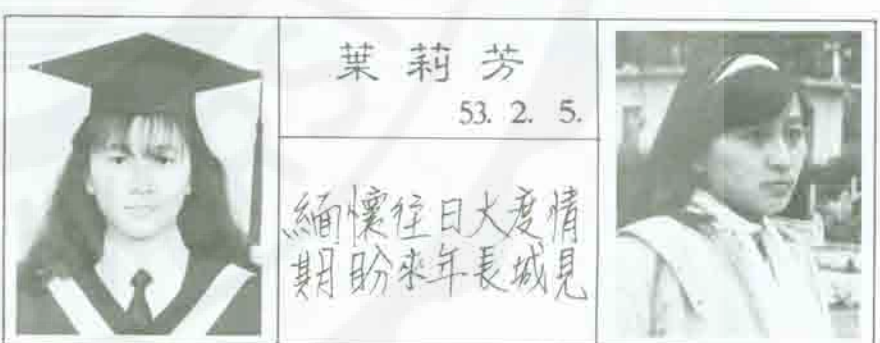 葉莉芳
53. 2. 5.
緬懷往日大度情
期盼來年長城見